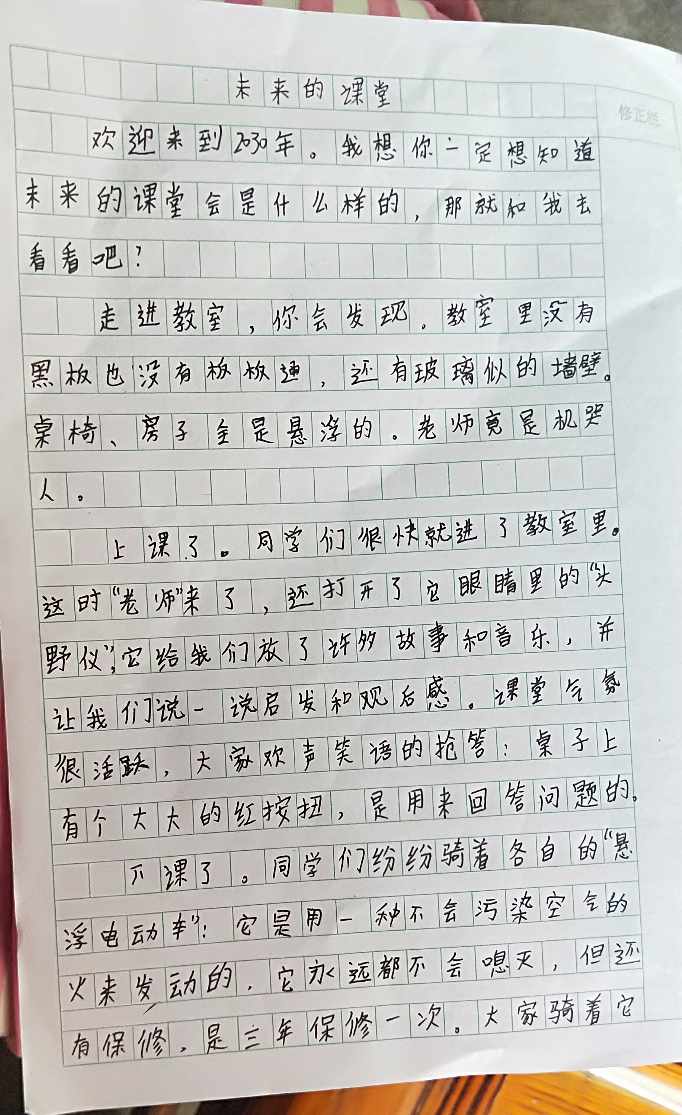 未来的课堂
修正栏
欢迎来到2030年。我想你一定想知道
未来的课堂会是什么样的，那就和我去
看看吧？
走进教室，你会发现。教室里没有
黑板也没有板板通，还有玻璃似的墙壁。
桌椅、房子全是悬浮的。老师竟是机哭
人。
上课了。同学们很快就进了教室里。
这时"老师"来了，还打开了它眼睛里的"头
野仪"，它给我们放了许多故事和音乐，并
让我们说一说启发和观后感。课堂气氛
很活跃，大家欢声笑语的抢答：桌子上
有个大大的红按扭，是用来回答问题的。
下课了。同学们纷纷骑着各自的"悬
浮电动车"：它是用一种不会污染空气的
火来发动的，它永远都不会熄灭，但还
有保修，是三年保修一次。大家骑着它